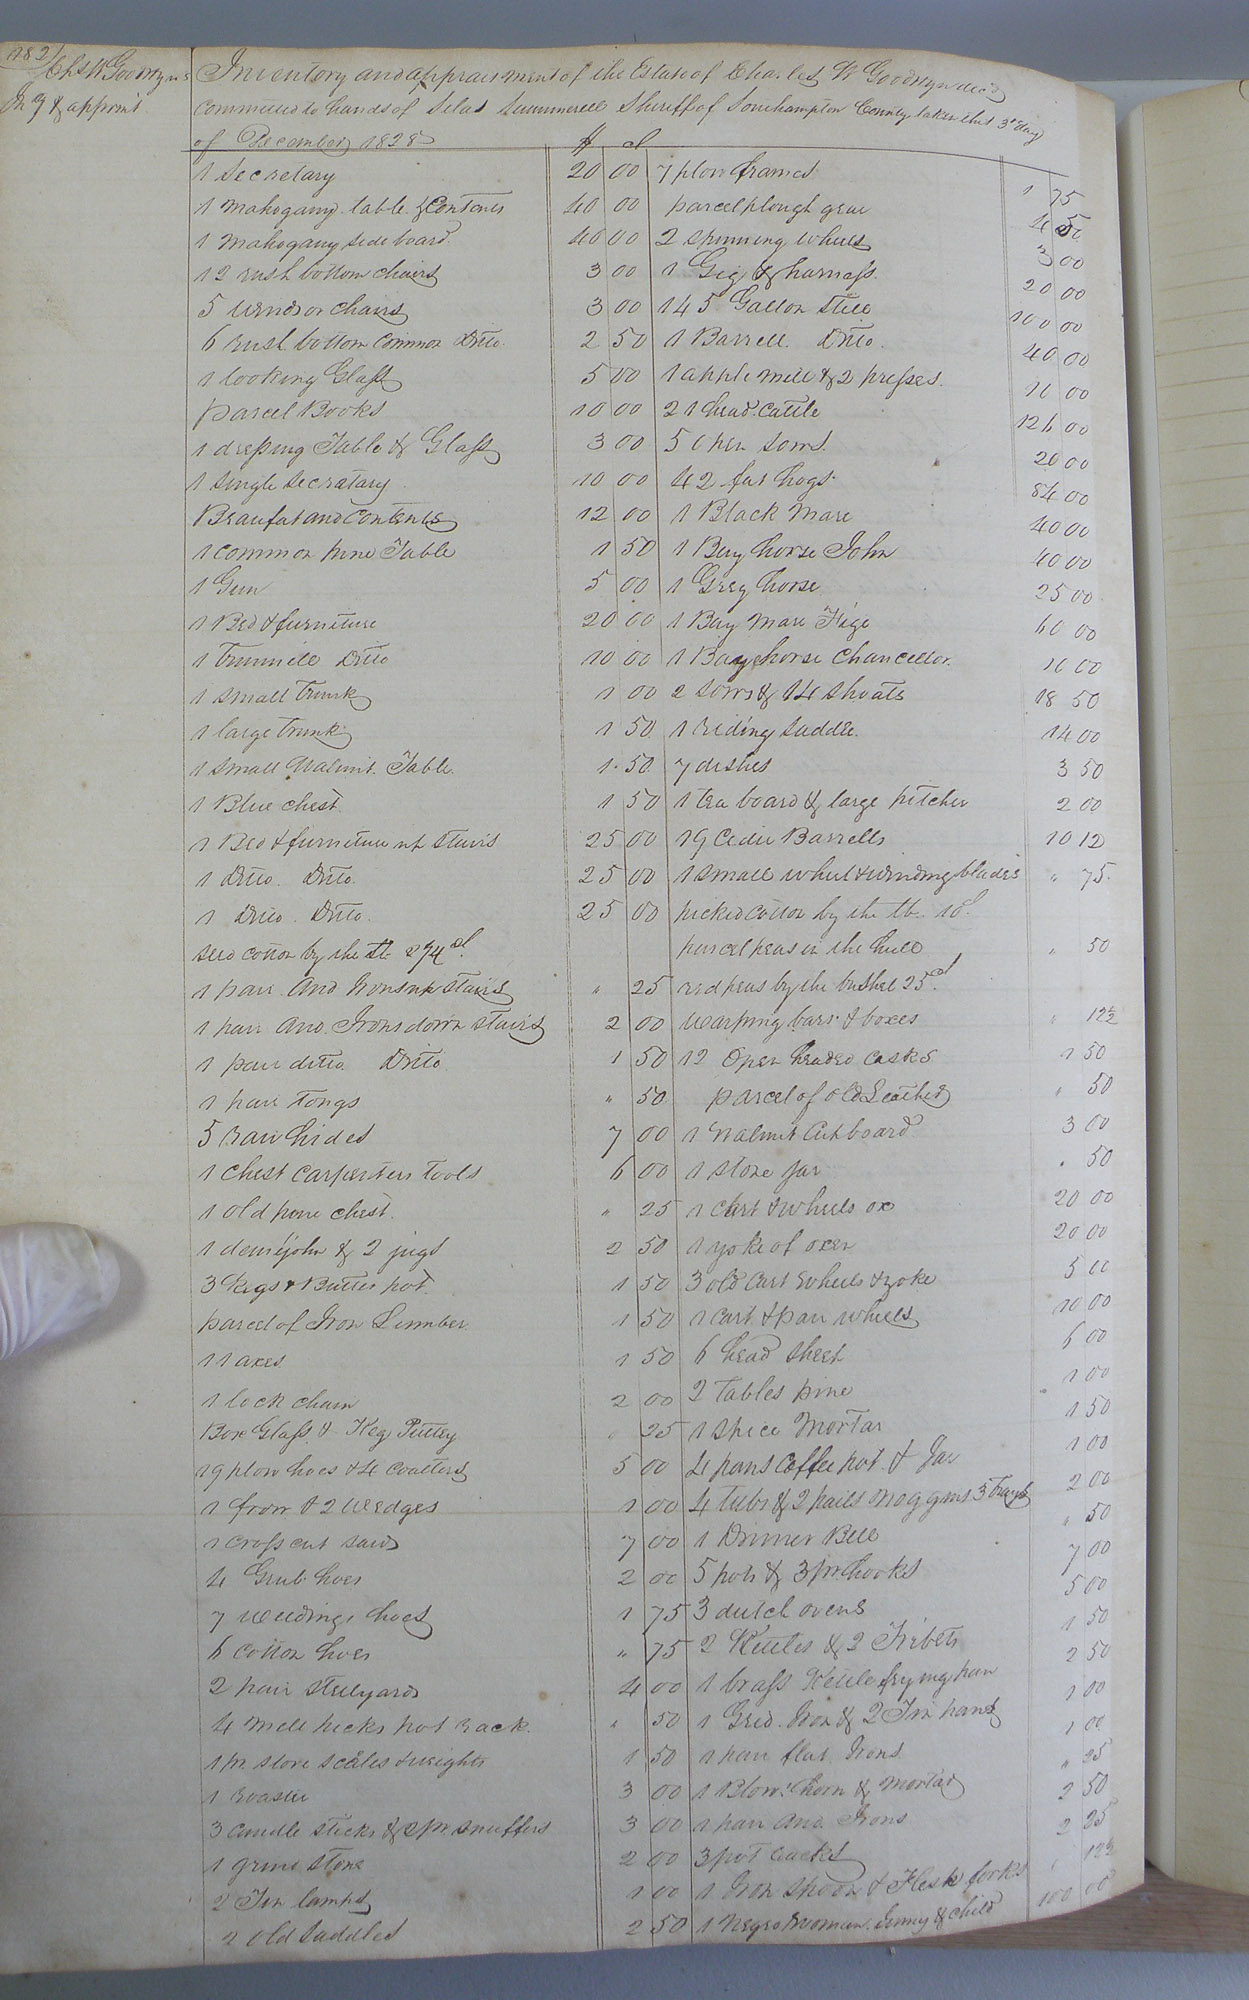 182
Chs W Goodwyns
In y & apprmt
Inventory and appraisement of the Estate of Charles W Goodwyn decd
Committed to hands of Silas Summerell Sheriff of Southampton County taken this 3d day
of December 1828
$ cl
1 Secretary 20 00
1 Mahogany table & Contents 40 00
1 Mahogany Side board 40 00
12 rush bottom chairs 3 00
5 Windsor Chairs 3 00
6 rush bottom common Ditto 2 50
1 looking Glass 5 00
parcel Books 10 00
1 dressing Table & Glass 3 00
1 single Secratary 10 00
Beaufat and Contents 12 00
1 common pine Table 1 50
1 Gun 5 00
1 Bed & furniture 20 00
1 Trunnell Ditto 10 00
1 small Trunk 1 00
1 large trunk 1 50
1 small Walnut Table 1 50
1 Blue chest 1 50
1 Bed & furniture up stairs 25 00
1 Ditto Ditto 25 00
1 Ditto Ditto 25 00
Seed cotton by the lb 2 3/4 cl
1 pair And Irons up stairs " 25
1 pair And. Irons down stairs 2 00
1 pair ditto Ditto 1 50
1 pair tongs " 50
5 raw hides 7 00
1 chest carpenters tools 6 00
1 old pine chest " 25
1 demijohn & 2 jugs 2 50
3 Kegs & Butter pot 1 50
parcel of Iron Lumber 1 50
11 axes 1 50
1 lock chain 2 00
Box Glass & Keg Puttey " 25
19 plow hoes & 4 Coulters 5 00
1 frow & 2 Wedges 1 00
1 Cross cut saw 7 00
4 Grub hoes 2 00
7 Weedings hoes 1 75
6 Cotton hoes " 75
2 pair Stillyards 4 00
4 Mill picks pot rack " 50
1 pr store scales & weights 1 50
1 roaster 3 00
3 candle sticks & 2 pr snuffers 3 00
1 grind stone 2 00
2 Tin lamps 1 00
2 old Saddles 2 50
7 plow frames 1 75
parcel plough gear 4 50
2 spinning wheels 3 00
1 Gig & harness 20 00
145 Gallon Still 100 00
1 Barrell Ditto 40 00
1 apple mill & 2 presses 10 00
21 head cattle 126 00
5 open sows 20 00
42 fat hogs 84 00
1 Black Mare 40 00
1 Bay horse John 40 00
1 Grey horse 25 00
1 Bay Mare Fige 60 00
1 Bay horse Chancellor 10 00
2 sows & 14 shoats 18 50
1 riding saddle 14 00
7 dishes 3 50
1 tea board & large pitcher 2 00
19 Cedir Barrells 10 12
1 small wheel & winding blades " 75
picked cotton by the lb 10 cl
parcel peas in the hull " 50
red peas by the bushel 25 cl
Warping bars & boxes " 12½
12 Open headed casks 1 50
parcel of old Leather " 50
1 Walnut Cupboard 3 00
1 stone jar " 50
1 cart & wheels ox 20 00
1 yoke of oxen 20 00
3 old cart wheels & yoke 5 00
1 cart & pair wheels 10 00
6 head sheep 6 00
2 Tables pine 1 00
1 spice Mortar 1 50
4 pans Coffee pot & Jar 1 00
4 tubs & 2 pails noggins 3 Trays 2 00
1 Dinner Bell " 50
5 pots & 3 pr hooks 7 00
3 dutch ovens 5 00
2 Kettles & 2 Tribets 1 50
1 brass Kettle frying pan 2 50
1 Grid. Iron & 2 Tin pans 1 00
1 pair flat Irons 1 00
1 Blow. horn & Mortar " 25
1 pair And. Irons 2 50
3 pot racks 2 25
1 Iron spoon & Flesh forks " 12½
1 Negro Woman Jenny & Child 100 00